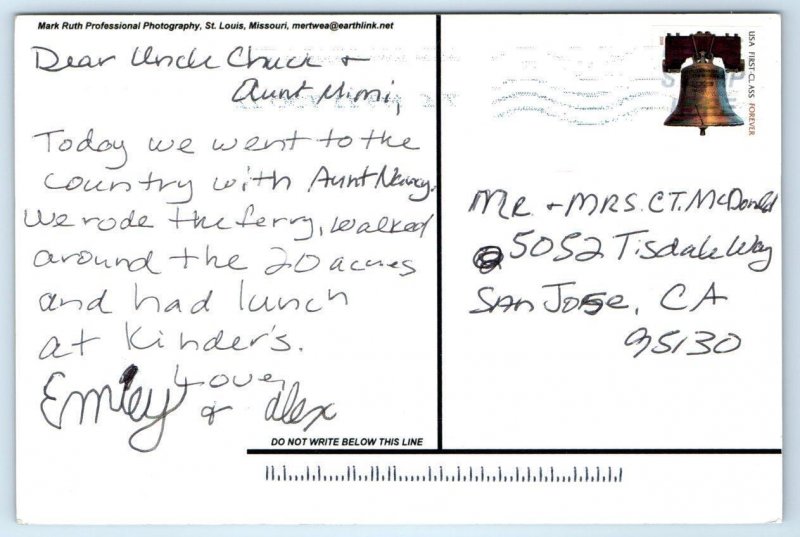 Mark Ruth Professional Photography, St. Louis, Missouri, mertwea@earthlink.net
Dear Uncle Chuck +
Aunt Mimi,
Today we went to the
country with Aunt Nancy.
We rode the ferry, walked
around the 20 acres
and had lunch
at Kinder's.
Love,
Emily + Alex
DO NOT WRITE BELOW THIS LINE
USA FIRST-CLASS FOREVER
MR. + MRS. C.T. McDonald
5052 Tisdale Way
SAN JOSE, CA
95130